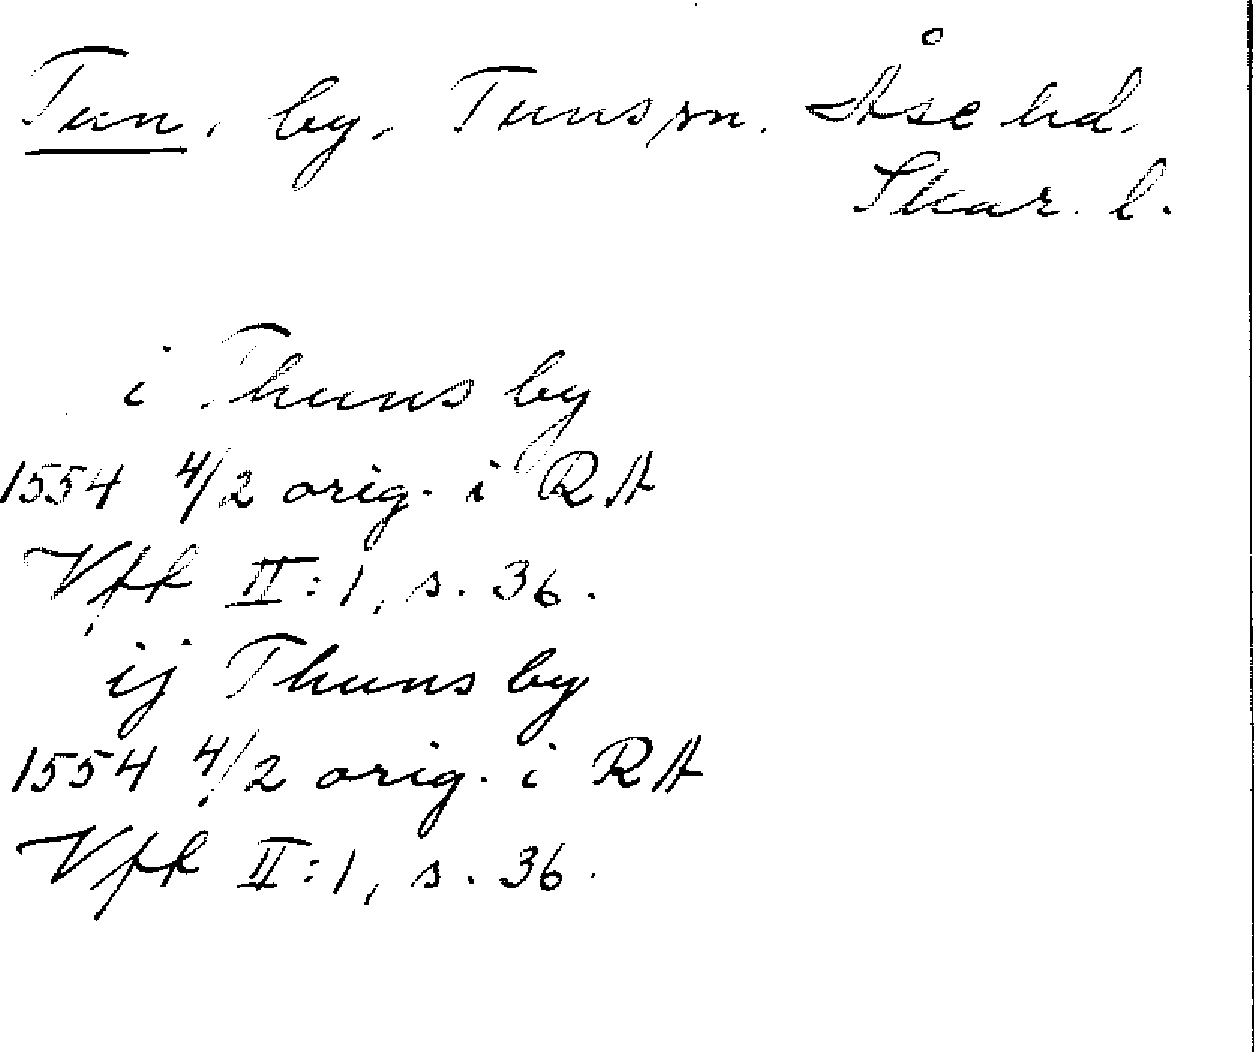 Tun, by, Tuns sn. Åse hd.
Skar. l.
i Thuns by
1554 4/2 orig. i RA
Vff II:1, s. 36.
ij Thuns by
1554 4/2 orig. i RA
Vff II:1, s. 36.